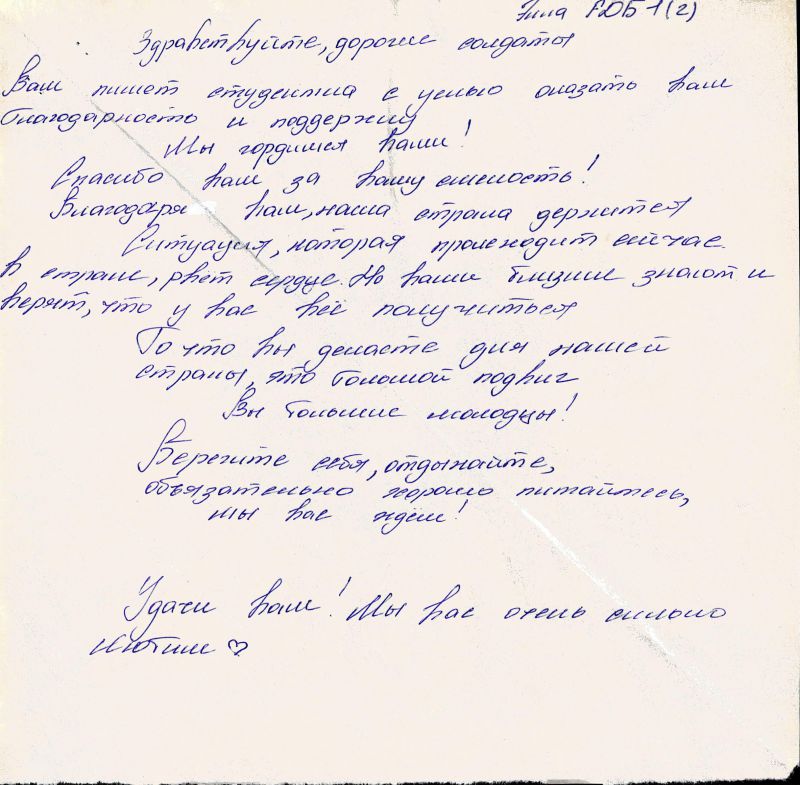 РДБ 1(г)
Здравствуйте, дорогие солдаты
Вам пишет студентка с целью оказать вам
благодарность и поддержку
Мы гордимся вами!
Спасибо вам за вашу смелость!
Благодаря вам, наша страна держится
Ситуация, которая происходит сейчас
в стране, рвёт сердце. Но ваши близкие знают и
верят, что у вас всё получиться
То что вы делаете для нашей
страны, это большой подвиг
Вы большие молодцы!
Берегите себя, отдыхайте,
обязательно хорошо питайтесь,
мы вас ждём!
Удачи вам! Мы вас очень сильно
любим ♡